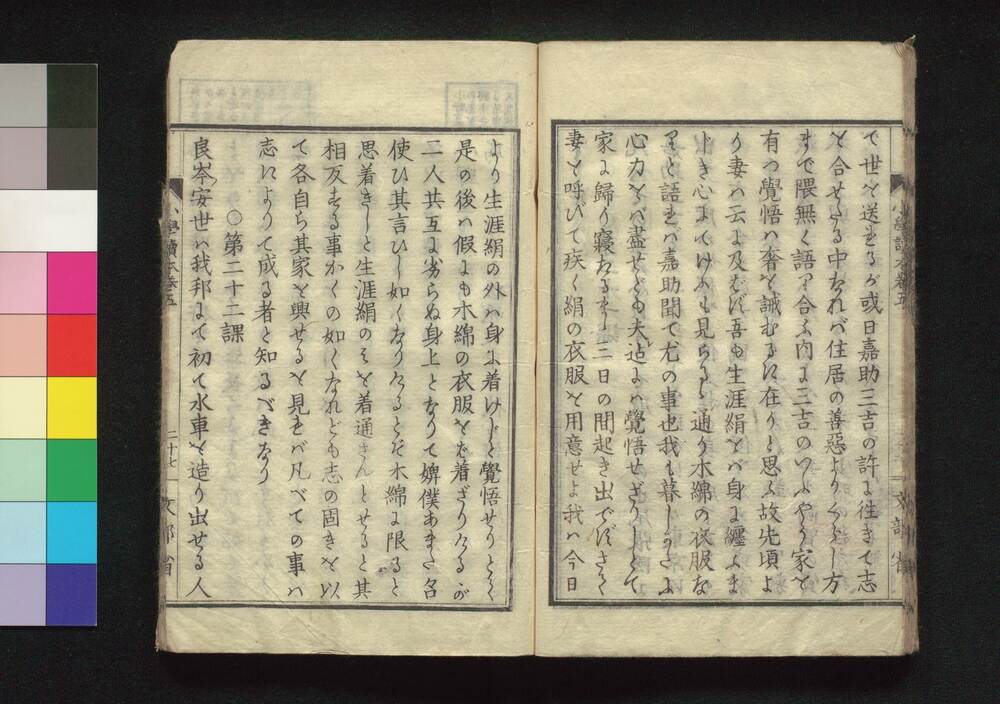 で世を送るが或日嘉助三吉の許に往きて志
を合せたる中なれバ住居の善惡よりくらし方
まで隈無く語り合ふ内に三吉のいふやう家を
有つ覺悟ハ奢を誡むるに在りと思ふ故先頃よ
り妻ハ云ふに及ばず吾も生涯絹をバ身に纏ふま
じき心にて
見らるゝ通り木綿の衣服な
りと語れバ嘉助聞て尤の事也我も暮しかたに
心力をバ盡せども夫迄にハ覺悟せざりしとて
家に歸り寢たるまゝ二日の間起き出でずさて
妻を呼びて疾く絹の衣服を用意せよ我ハ今日
より生涯絹の外ハ身に着けじと覺悟せりとぞ
是の後ハ假にも木綿の衣服をば着ざりけるが
二人共互に劣らぬ身上となりて婢僕あまた召
使ひ其言ひし如くなりけるとぞ木綿に限ると
思着きしと生涯絹のみを着通さんとせると其
相反する事かくの如くなれども志の固きを以
て各自ら其家を興せるを見れバ凡べての事ハ
志によりて成る者と知るべきなり
○第二十二課
良岑安世ハ我邦にて初て水車を造り出せる人
小學讀本卷五
二十七
文部省
小學讀本卷五
文部省